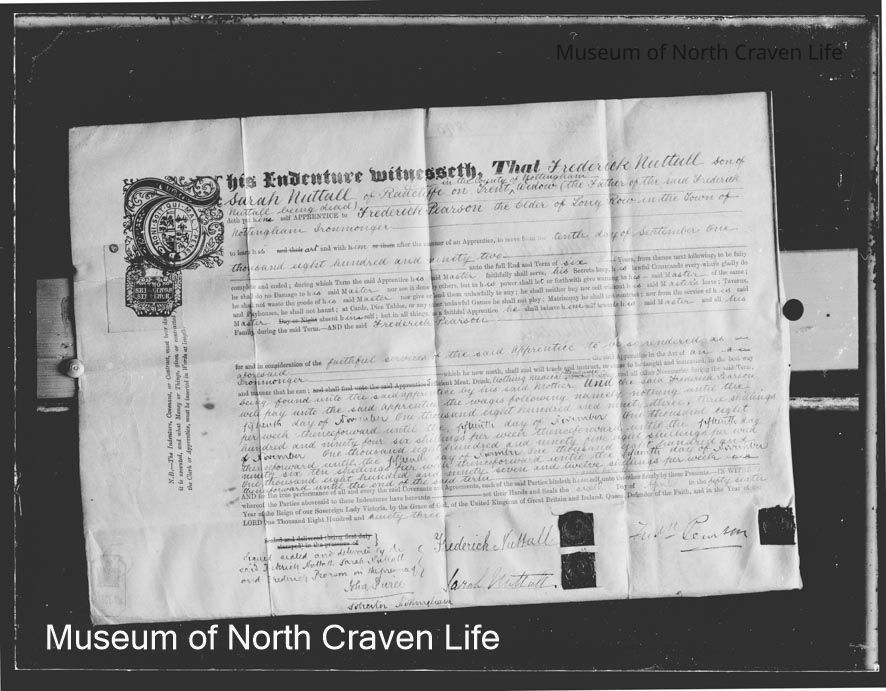 Museum of North Craven Life
This Indenture Witnesseth, That Frederick Nuttall son of
in the County of Nottingham
Sarah Nuttall of Radcliffe on Trent, Widow (the Father of the said Frederick
Nuttall being dead)
doth put himself APPRENTICE to Frederick Pearson the elder of Long Row in the Town of
Nottingham Ironmonger
to learn his and their art and with him or them after the manner of an Apprentice, to serve from the tenth day of September one
thousand eight hundred and ninety two unto the full End and Term of six Years, from thence next following, to be fully
complete and ended; during which Term the said Apprentice his said Master faithfully shall serve, his Secrets keep, his lawful Commands every-where gladly do
he shall do no Damage to his said Master nor see it done by others, but to his power shall let or forthwith give warning to his said Master of the same;
he shall not waste the goods of his said Master nor give or lend them unlawfully to any; he shall neither buy nor sell without his said Master's leave; Taverns,
and Playhouses, he shall not haunt; at Cards, Dice Tables, or any other unlawful Games he shall not play; Matrimony he shall not contract; nor from the service of his said
Master Day or Night absent himself; but in all things, as a faithful Apprentice he shall behave himself towards his said Master and all his
Family during the said Term.—AND the said Frederick Pearson
for and in consideration of the faithful services of the said Apprentice to be rendered as
aforesaid the said Apprentice in the Art of an
Ironmonger which he now useth, shall and will teach and instruct, or cause to be taught and instructed, in the best way
and manner that he can; and shall find unto the said Apprentice sufficient Meat, Drink, Clothing medical and all other Necessaries during the said Term,
being found unto the said apprentice by his said Mother. And the said Frederick Pearson
will pay unto the said apprentice the wages following namely nothing until the
fifteenth day of November one thousand eight hundred and ninety three, three shillings
per week thenceforward until the fifteenth day of November one thousand eight
hundred and ninety four six shillings per week thenceforward until the fifteenth day
of November one thousand eight hundred and ninety five eight shillings per week
thenceforward until the fifteenth day of November one thousand eight hundred and
ninety six ten shillings per week thenceforward until the fifteenth day of November
one thousand eight hundred and ninety seven and twelve shillings per week
thenceforward until the end of the said term
AND for the true performance of all and every the said Covenants and Agreements, each of the said Parties bindeth himself unto the other firmly by these Presents.—IN WITNESS
whereof the Parties abovesaid to these Indentures have hereunto set their Hands and Seals the Day of April in the fifty sixth
Year of the Reign of our Sovereign Lady Victoria, by the Grace of God, of the United Kingdom of Great Britain and Ireland, Queen, Defender of the Faith, and in the Year of our
LORD One Thousand Eight Hundred and ninety three
Sealed and delivered (being first duly
stamped) in the presence of
Signed sealed and delivered by the
said Frederick Nuttall Sarah Nuttall
and Frederick Pearson in the presence of
Solicitor Nottingham
Frederick Nuttall
Sarah Nuttall.
Fredk Pearson
N.B.—The Indenture, Covenant, or Contract, must bear date the
it is executed, and what Money or Things, given or contracted
the Clerk or Apprentice, must be inserted in Words at length;
Museum of North Craven Life